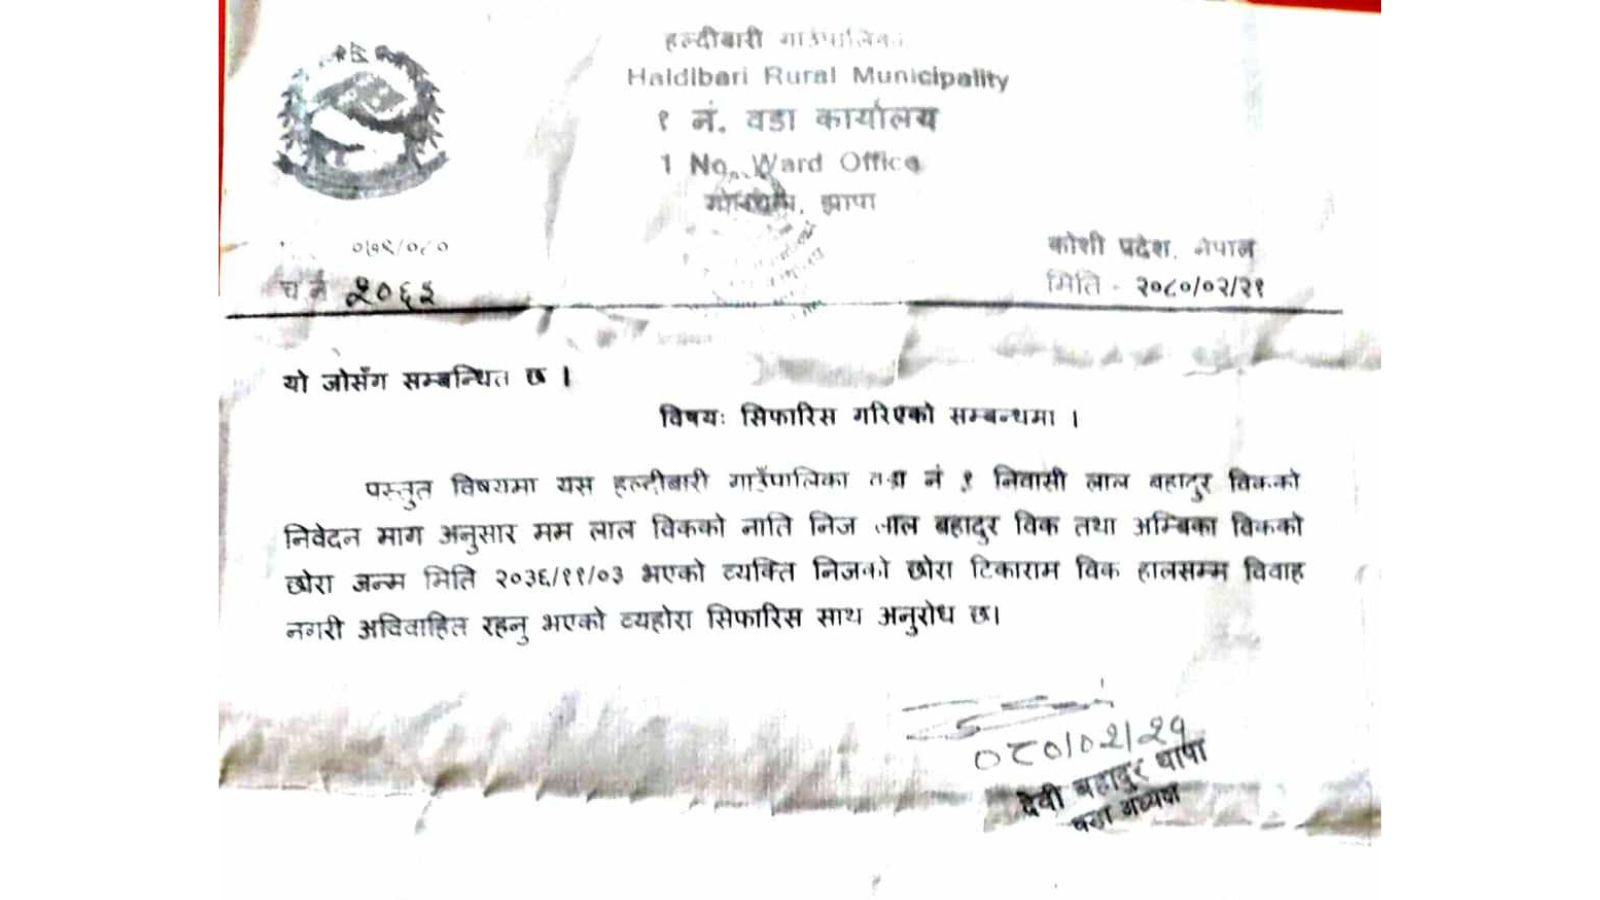 हल्दीबारी गाउँपालिका
Haldibari Rural Municipality
१ नं. वडा कार्यालय
1 No. Ward Office
झापा
०७९/०८०
कोशी प्रदेश, नेपाल
च नं २०६३
मिति - २०८०/०२/२१
यो जोसँग सम्बन्धित छ ।
विषयः सिफारिस गरिएको सम्बन्धमा ।
प्रस्तुत विषयमा यस हल्दीबारी गाउँपालिका वडा नं १ निवासी लाल बहादुर विकको
निवेदन माग अनुसार मम लाल विकको नाति निज लाल बहादुर विक तथा अम्बिका विकको
छोरा जन्म मिति २०३६/११/०३ भएको व्यक्ति निजको छोरा टिकाराम विक हालसम्म विवाह
नगरी अविवाहित रहनु भएको व्यहोरा सिफारिस साथ अनुरोध छ।
०८०/०२/२१
देवी बहादुर थापा
वडा अध्यक्ष